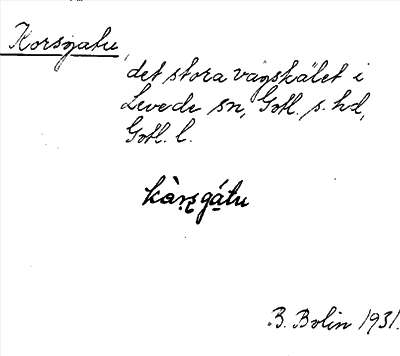 Korsgatu,
det stora vägskälet i
Levede sn, Gotl. s. hd,
Gotl. l.
kàrsgátu
B. Bolin 1931.